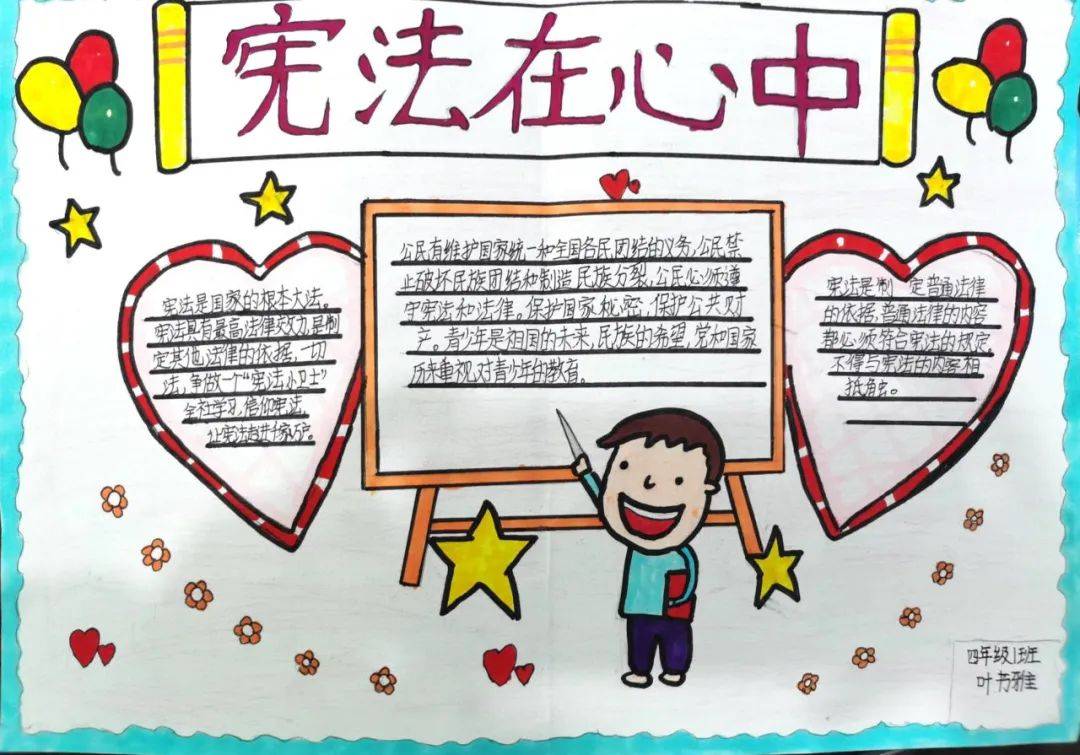 宪法在心中
宪法是国家的根本大法。
宪法具有最高法律效力,是制
定其他法律的依据,一切
法,争做一个“宪法小卫士”
全社学习,信仰宪法,
让宪法走进千家万户。
公民有维护国家统一和全国各民团结的义务,公民禁
止破坏民族团结和制造民族分裂,公民必须遵
守宪法和法律。保护国家秘密,保护公共财
产。青少年是祖国的未来,民族的希望,党和国家
历来重视对青少年的教育。
宪法是制 定普通法律
的依据,普通法律的内容
都必须符合宪法的规定,
不得与宪法的内容相
抵触。
四年级1班
叶书雅